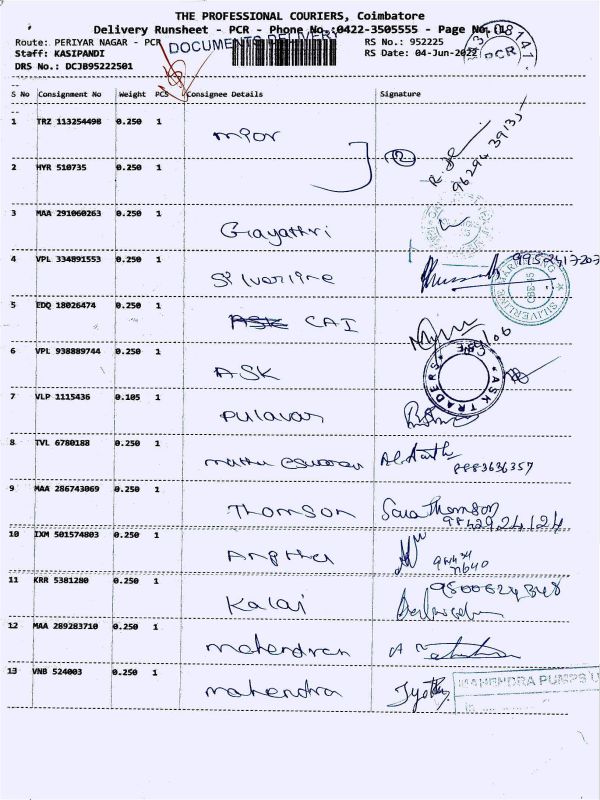 THE PROFESSIONAL COURIERS, Coimbatore
Delivery Runsheet - PCR - Phone No.:0422-3505555 - Page No.(1)
Route: PERIYAR NAGAR - PCR
RS No.: 952225
Staff: KASIPANDI
RS Date: 04-Jun-2022
DRS No.: DCJB95222501
DOCUMENTS DELIVERY
PCR
S No Consignment No Weight PCS Consignee Details Signature
1 TRZ 113254498 0.250 1 mpor
2 HYR 510735 0.250 1 2
3 MAA 291060263 0.250 1 Gayathri
4 VPL 334891553 0.250 1 Silverline 9952417207
SILVERLINE MARKETING
CBE-45
5 EDQ 18026474 0.250 1 ASK CAI
6 VPL 938889744 0.250 1 ASK
ASK TRADERS CBE
7 VLP 1115436 0.105 1 pulavar
8 TVL 6780188 0.250 1 muthu eswaran
9 MAA 286743069 0.250 1 Thomson Sara Thomson
9842924124
10 IXM 501574803 0.250 1
11 KRR 5381280 0.250 1 Kalai
12 MAA 289283710 0.250 1 mahendran
13 VNB 524003 0.250 1 mahendra Jyothi
MAHENDRA PUMPS